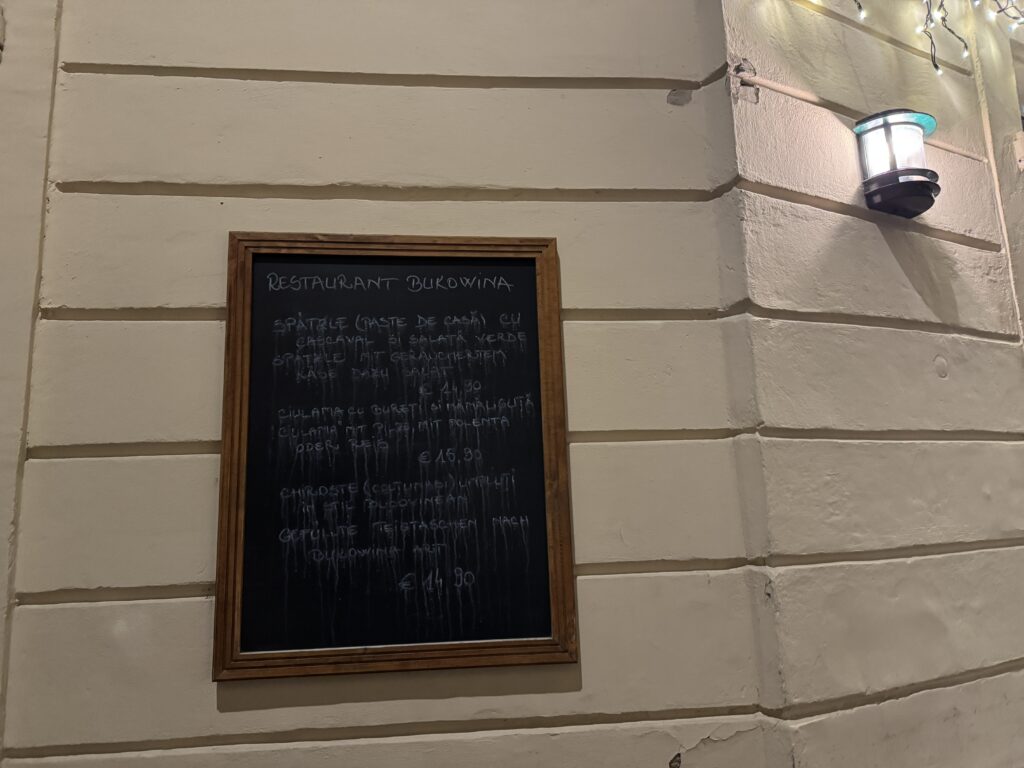 RESTAURANT BUKOWINA
SPÄTZLE (PASTE DE CASĂ) CU
CAȘCAVAL SI SALATĂ VERDE
SPÄTZLE MIT GERÄUCHERTEM
KÄSE DAZU SALAT
€ 14,90
CIULAMA CU BUREȚI SI MĂMĂLIGUȚĂ
CIULAMA MIT PILZE MIT POLENTA
ODER REIS
€ 15,90
CHIROȘTE (COLȚUNAȘI) UMPLUȚI
IN STIL BUCOVINEAN
GEFÜLLTE TEIGTASCHEN NACH
BUKOWINA ART
€ 14,90